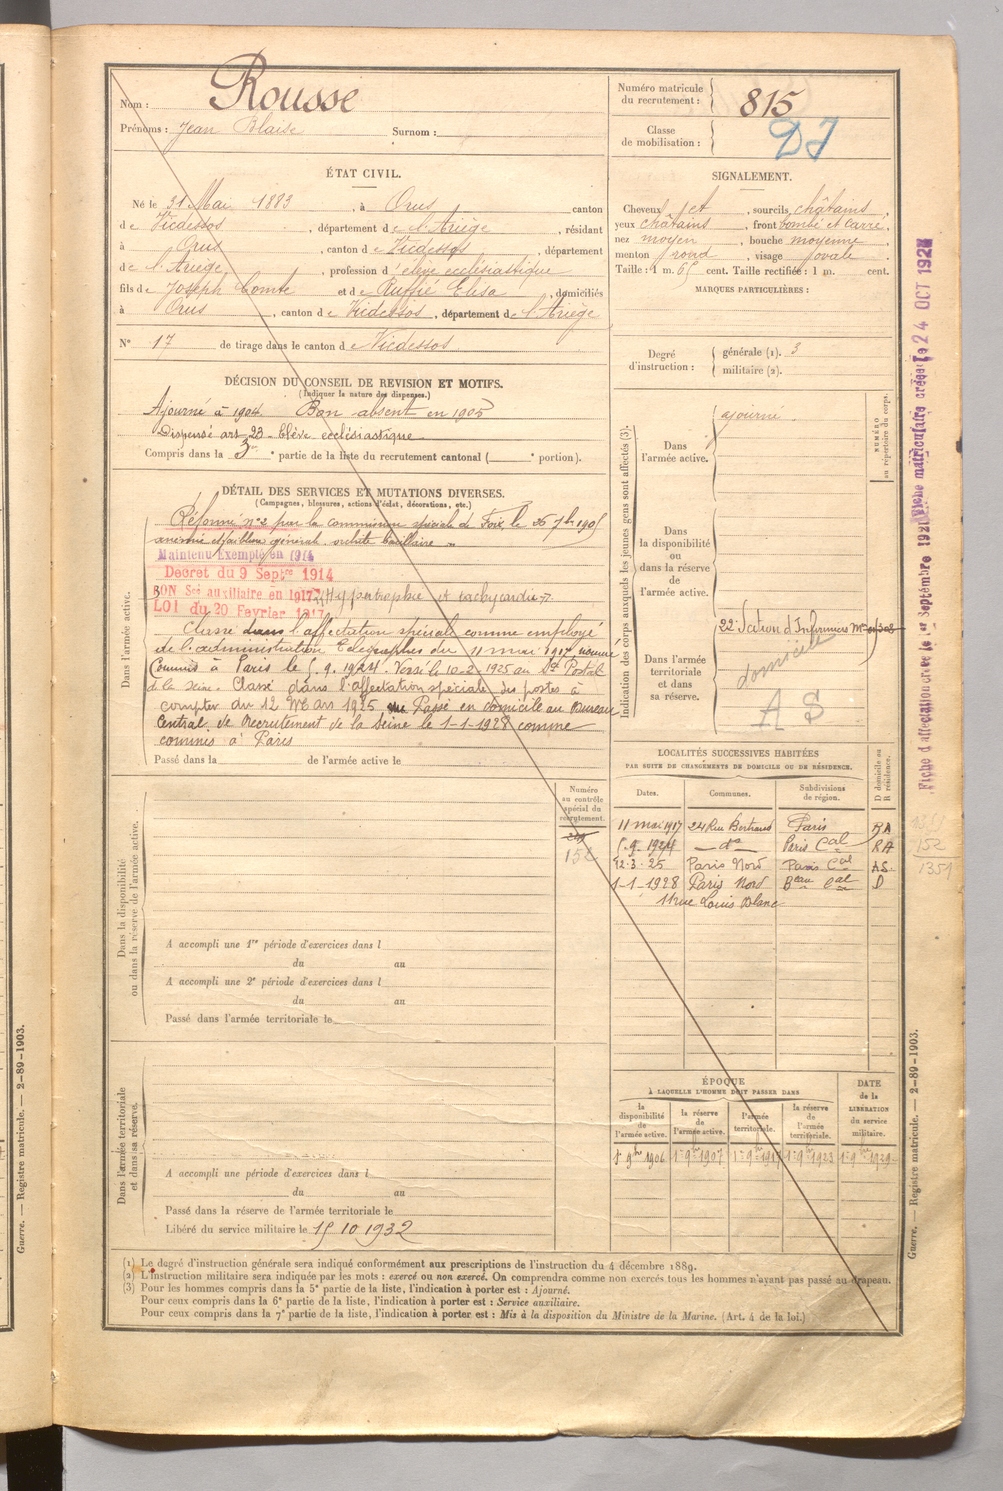 Nom : Rousse
Prénoms : Jean Blaise Surnom :
Numéro matricule du recrutement : 815
Classe de mobilisation : DJ
ÉTAT CIVIL.
Né le 31 Mai 1883, à Orus canton
de Vicdessos, département de l'Ariège, résidant
à Orus, canton de Vicdessos, département
de l'Ariège, profession d'élève ecclésiastique
fils de Joseph Comte et de Ruffié Elisa, domiciliés
à Orus, canton de Vicdessos, département de l'Ariège
N° 17 de tirage dans le canton de Vicdessos
SIGNALEMENT.
Cheveux et, sourcils châtains,
yeux châtains, front bombé et carré,
nez moyen, bouche moyenne
menton rond, visage ovale
Taille : 1 m. 65 cent. Taille rectifiée : 1 m. cent.
MARQUES PARTICULIÈRES :
Degré d'instruction : générale (1). 3
militaire (2).
DÉCISION DU CONSEIL DE REVISION ET MOTIFS.
(Indiquer la nature des dispenses.)
Ajourné à 1904. Bon absent en 1905
Dispensé art 23 Elève ecclésiastique
Compris dans la 3e partie de la liste du recrutement cantonal ( e portion).
DÉTAIL DES SERVICES ET MUTATIONS DIVERSES.
(Campagnes, blessures, actions d'éclat, décorations, etc.)
Dans l'armée active.
Réformé n° 2 par la commission spéciale de Foix, le 26 7bre 1905
anémie et faiblesse générale. orchite bacillaire
Maintenu Exempté en 1914
Décret du 9 Septre 1914
BON Sce auxiliaire en 1917 Hypertrophie et tachycardie
LOI du 20 Fevrier 1917
Classé dans l'affectation spéciale comme employé
de l'administration Télégraphes du 11 mai 1917 nommé
Commis à Paris le 5.9.1924. Versé le 10-2-1925 au St Postal
de la Seine. Classé dans l'affectation spéciale des postes à
compter du 12 Mars 1925 Passé en domicile au Bureau
Central de Recrutement de la Seine le 1-1-1928 comme
commis à Paris
Passé dans la de l'armée active le
Indication des corps auxquels les jeunes gens sont affectés (3).
NUMÉRO au répertoire du corps.
Dans l'armée active. ajourné
Dans la disponibilité ou dans la réserve de l'armée active.
Dans l'armée territoriale et dans sa réserve.
22e Section d'Infirmiers
domicile
AS
LOCALITÉS SUCCESSIVES HABITÉES
PAR SUITE DE CHANGEMENTS DE DOMICILE OU DE RÉSIDENCE.
Dates. Communes. Subdivisions de région. D domicile ou R résidence.
11 mai 1917 24 Rue Bertrand Paris RA
5.9.1924 — do — Paris Cal RA
12.3.25 Paris Nord Paris Cal AS
1-1-1928 Paris Nord Beau Cal D
11 rue Louis Blanc
Dans la disponibilité ou dans la réserve de l'armée active.
Numéro au contrôle spécial du recrutement.
152
152
1351
A accompli une 1re période d'exercices dans l
du au
A accompli une 2e période d'exercices dans l
du au
Passé dans l'armée territoriale le
ÉPOQUE
À LAQUELLE L'HOMME DOIT PASSER DANS
la disponibilité de l'armée active.
la réserve de l'armée active.
l'armée territoriale.
la réserve de l'armée territoriale.
DATE de la LIBÉRATION du service militaire.
1er 9bre 1906 1er 9bre 1907 1er 9bre 1917 1er 9bre 1923 1er 9bre 1929
Dans l'armée territoriale et dans sa réserve.
A accompli une période d'exercices dans l
du au
Passé dans la réserve de l'armée territoriale le
Libéré du service militaire le 15 10 1932
(1) Le degré d'instruction générale sera indiqué conformément aux prescriptions de l'instruction du 4 décembre 1889.
(2) L'instruction militaire sera indiquée par les mots : exercé ou non exercé. On comprendra comme non exercés tous les hommes n'ayant pas passé au drapeau.
(3) Pour les hommes compris dans la 5e partie de la liste, l'indication à porter est : Ajourné.
Pour ceux compris dans la 6e partie de la liste, l'indication à porter est : Service auxiliaire.
Pour ceux compris dans la 7e partie de la liste, l'indication à porter est : Mis à la disposition du Ministre de la Marine. (Art. 4 de la loi.)
Guerre. — Registre matricule. — 2-89-1903.
Guerre. — Registre matricule. — 2-89-1903.
Fiche d'affectation créée le 1er Septembre 1921
Fiche matriculaire créée le 24 OCT 192